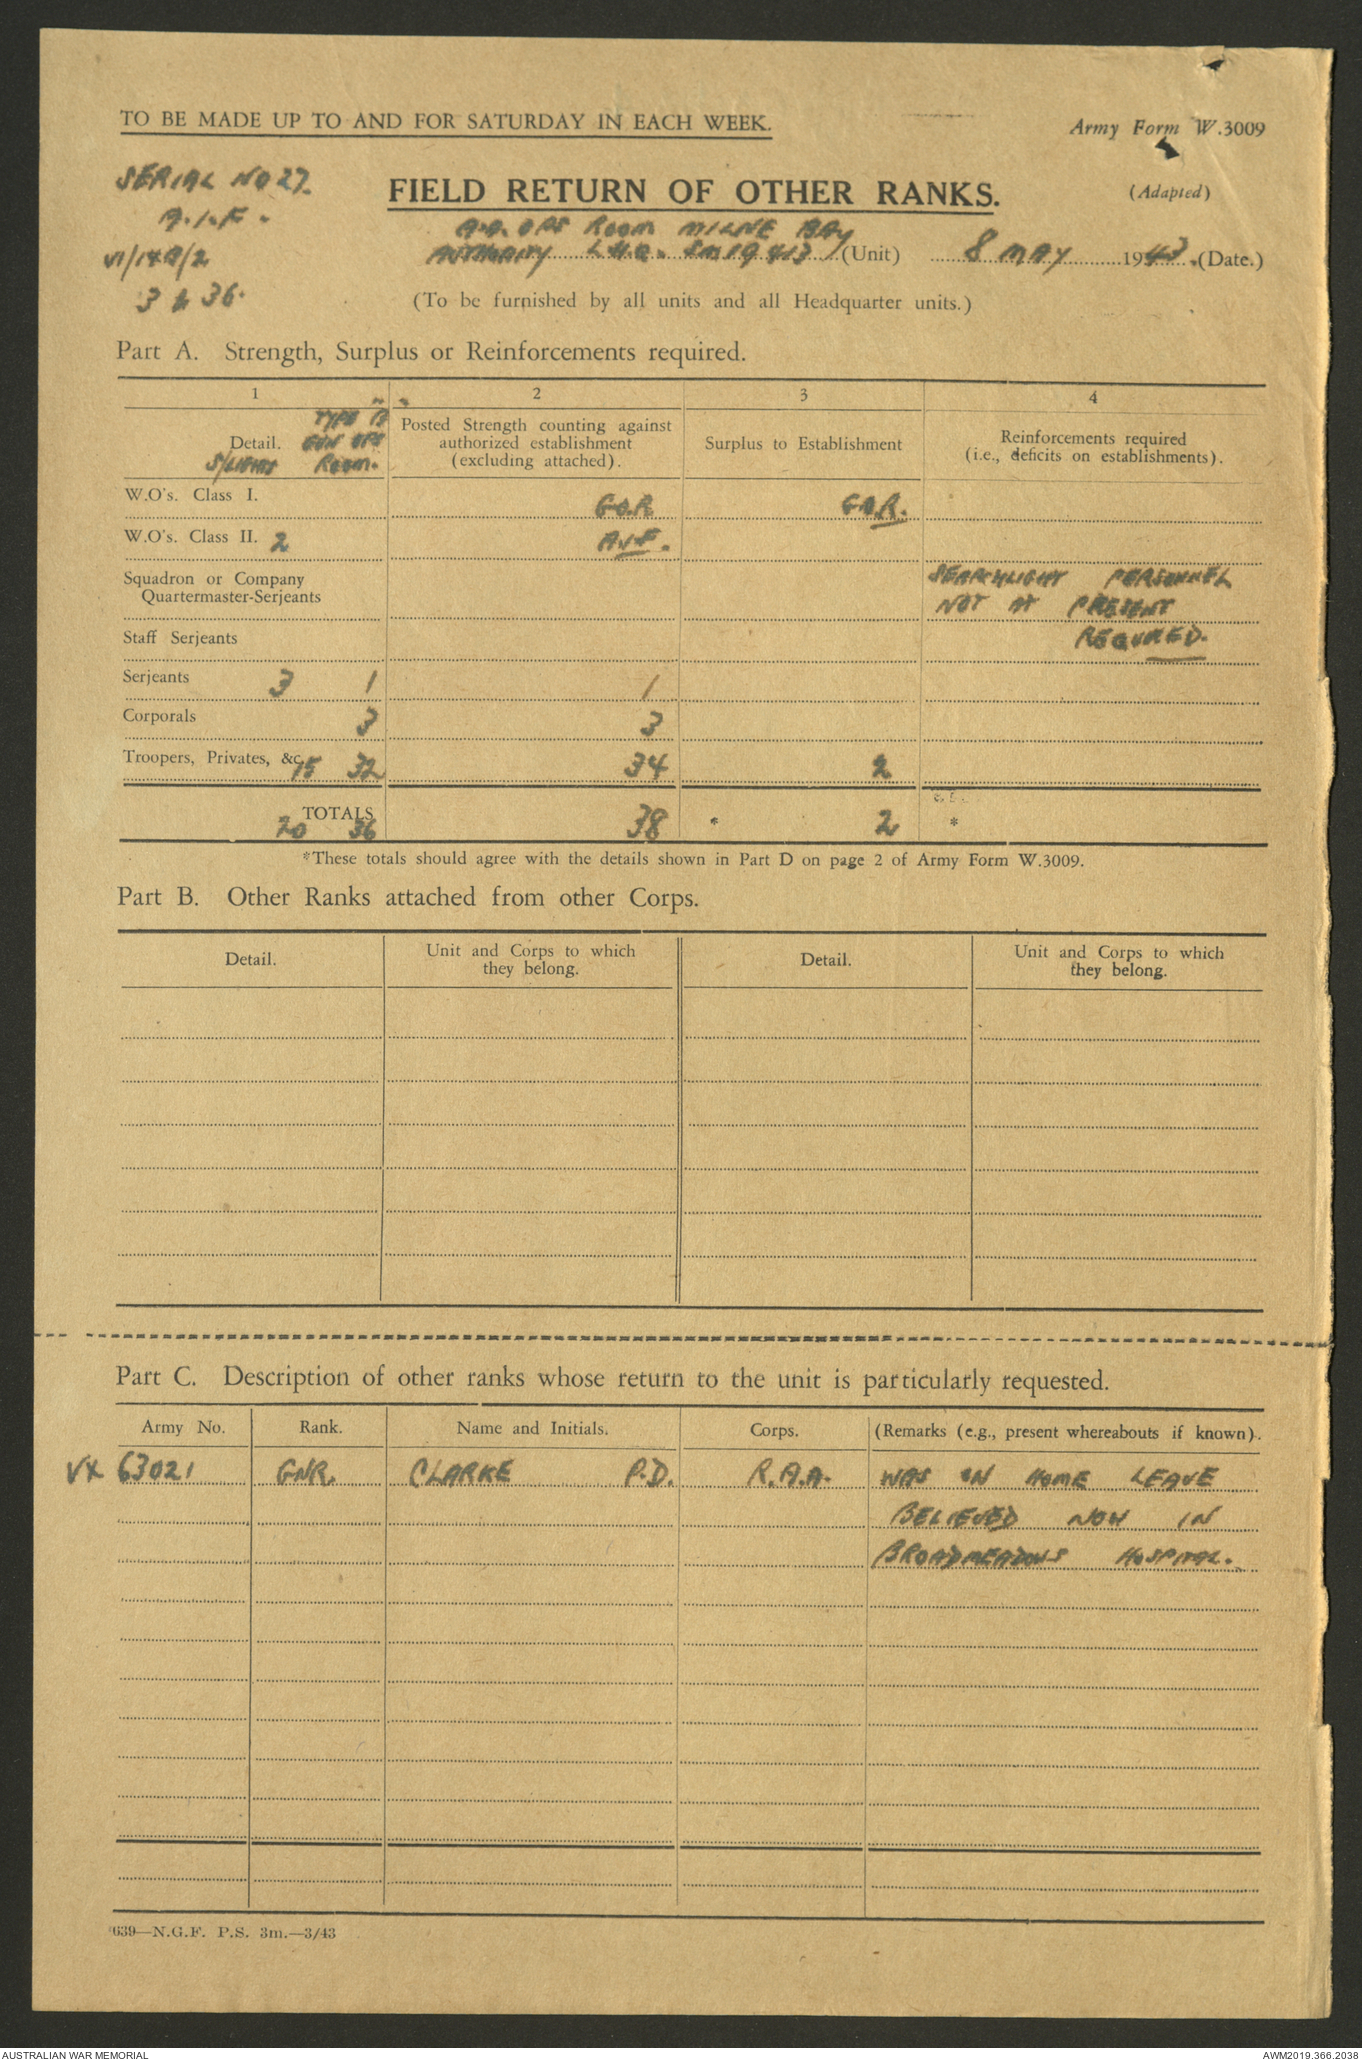 TO BE MADE UP TO AND FOR SATURDAY IN EACH WEEK.
Army Form W.3009
(Adapted)
SERIAL NO 27.
A.I.F.
VI/149/2
3 & 36.
FIELD RETURN OF OTHER RANKS.
A.A. OPS ROOM MILNE BAY
AUTHORITY L.H.Q. SM 19413 (Unit) 8 MAY 1943. (Date.)
(To be furnished by all units and all Headquarter units.)
Part A. Strength, Surplus or Reinforcements required.
1 2 3 4
Detail. S/LIGHTS TYPE "B" GUN OPS ROOM.
Posted Strength counting against
authorized establishment
(excluding attached).
Surplus to Establishment
Reinforcements required
(i.e., deficits on establishments).
W.O's. Class I. G.O.R G.O.R.
W.O's. Class II. 2
Squadron or Company
Quartermaster-Serjeants
SEARCHLIGHT PERSONNEL
NOT AT PRESENT
REQUIRED.
Staff Serjeants
Serjeants 3 1 1
Corporals 3 3
Troopers, Privates, &c. 15 32 34 2
TOTALS 20 36 38 * 2 *
*These totals should agree with the details shown in Part D on page 2 of Army Form W.3009.
Part B. Other Ranks attached from other Corps.
Detail. Unit and Corps to which they belong. Detail. Unit and Corps to which they belong.
Part C. Description of other ranks whose return to the unit is particularly requested.
Army No. Rank. Name and Initials. Corps. (Remarks (e.g., present whereabouts if known).
VX 63021 GNR. CLARKE P.D. R.A.A. WAS ON HOME LEAVE
BELIEVED NOW IN
BROADMEADOWS HOSPITAL.
639—N.G.F. P.S. 3m.—3/43
AUSTRALIAN WAR MEMORIAL
AWM2019.366.2038